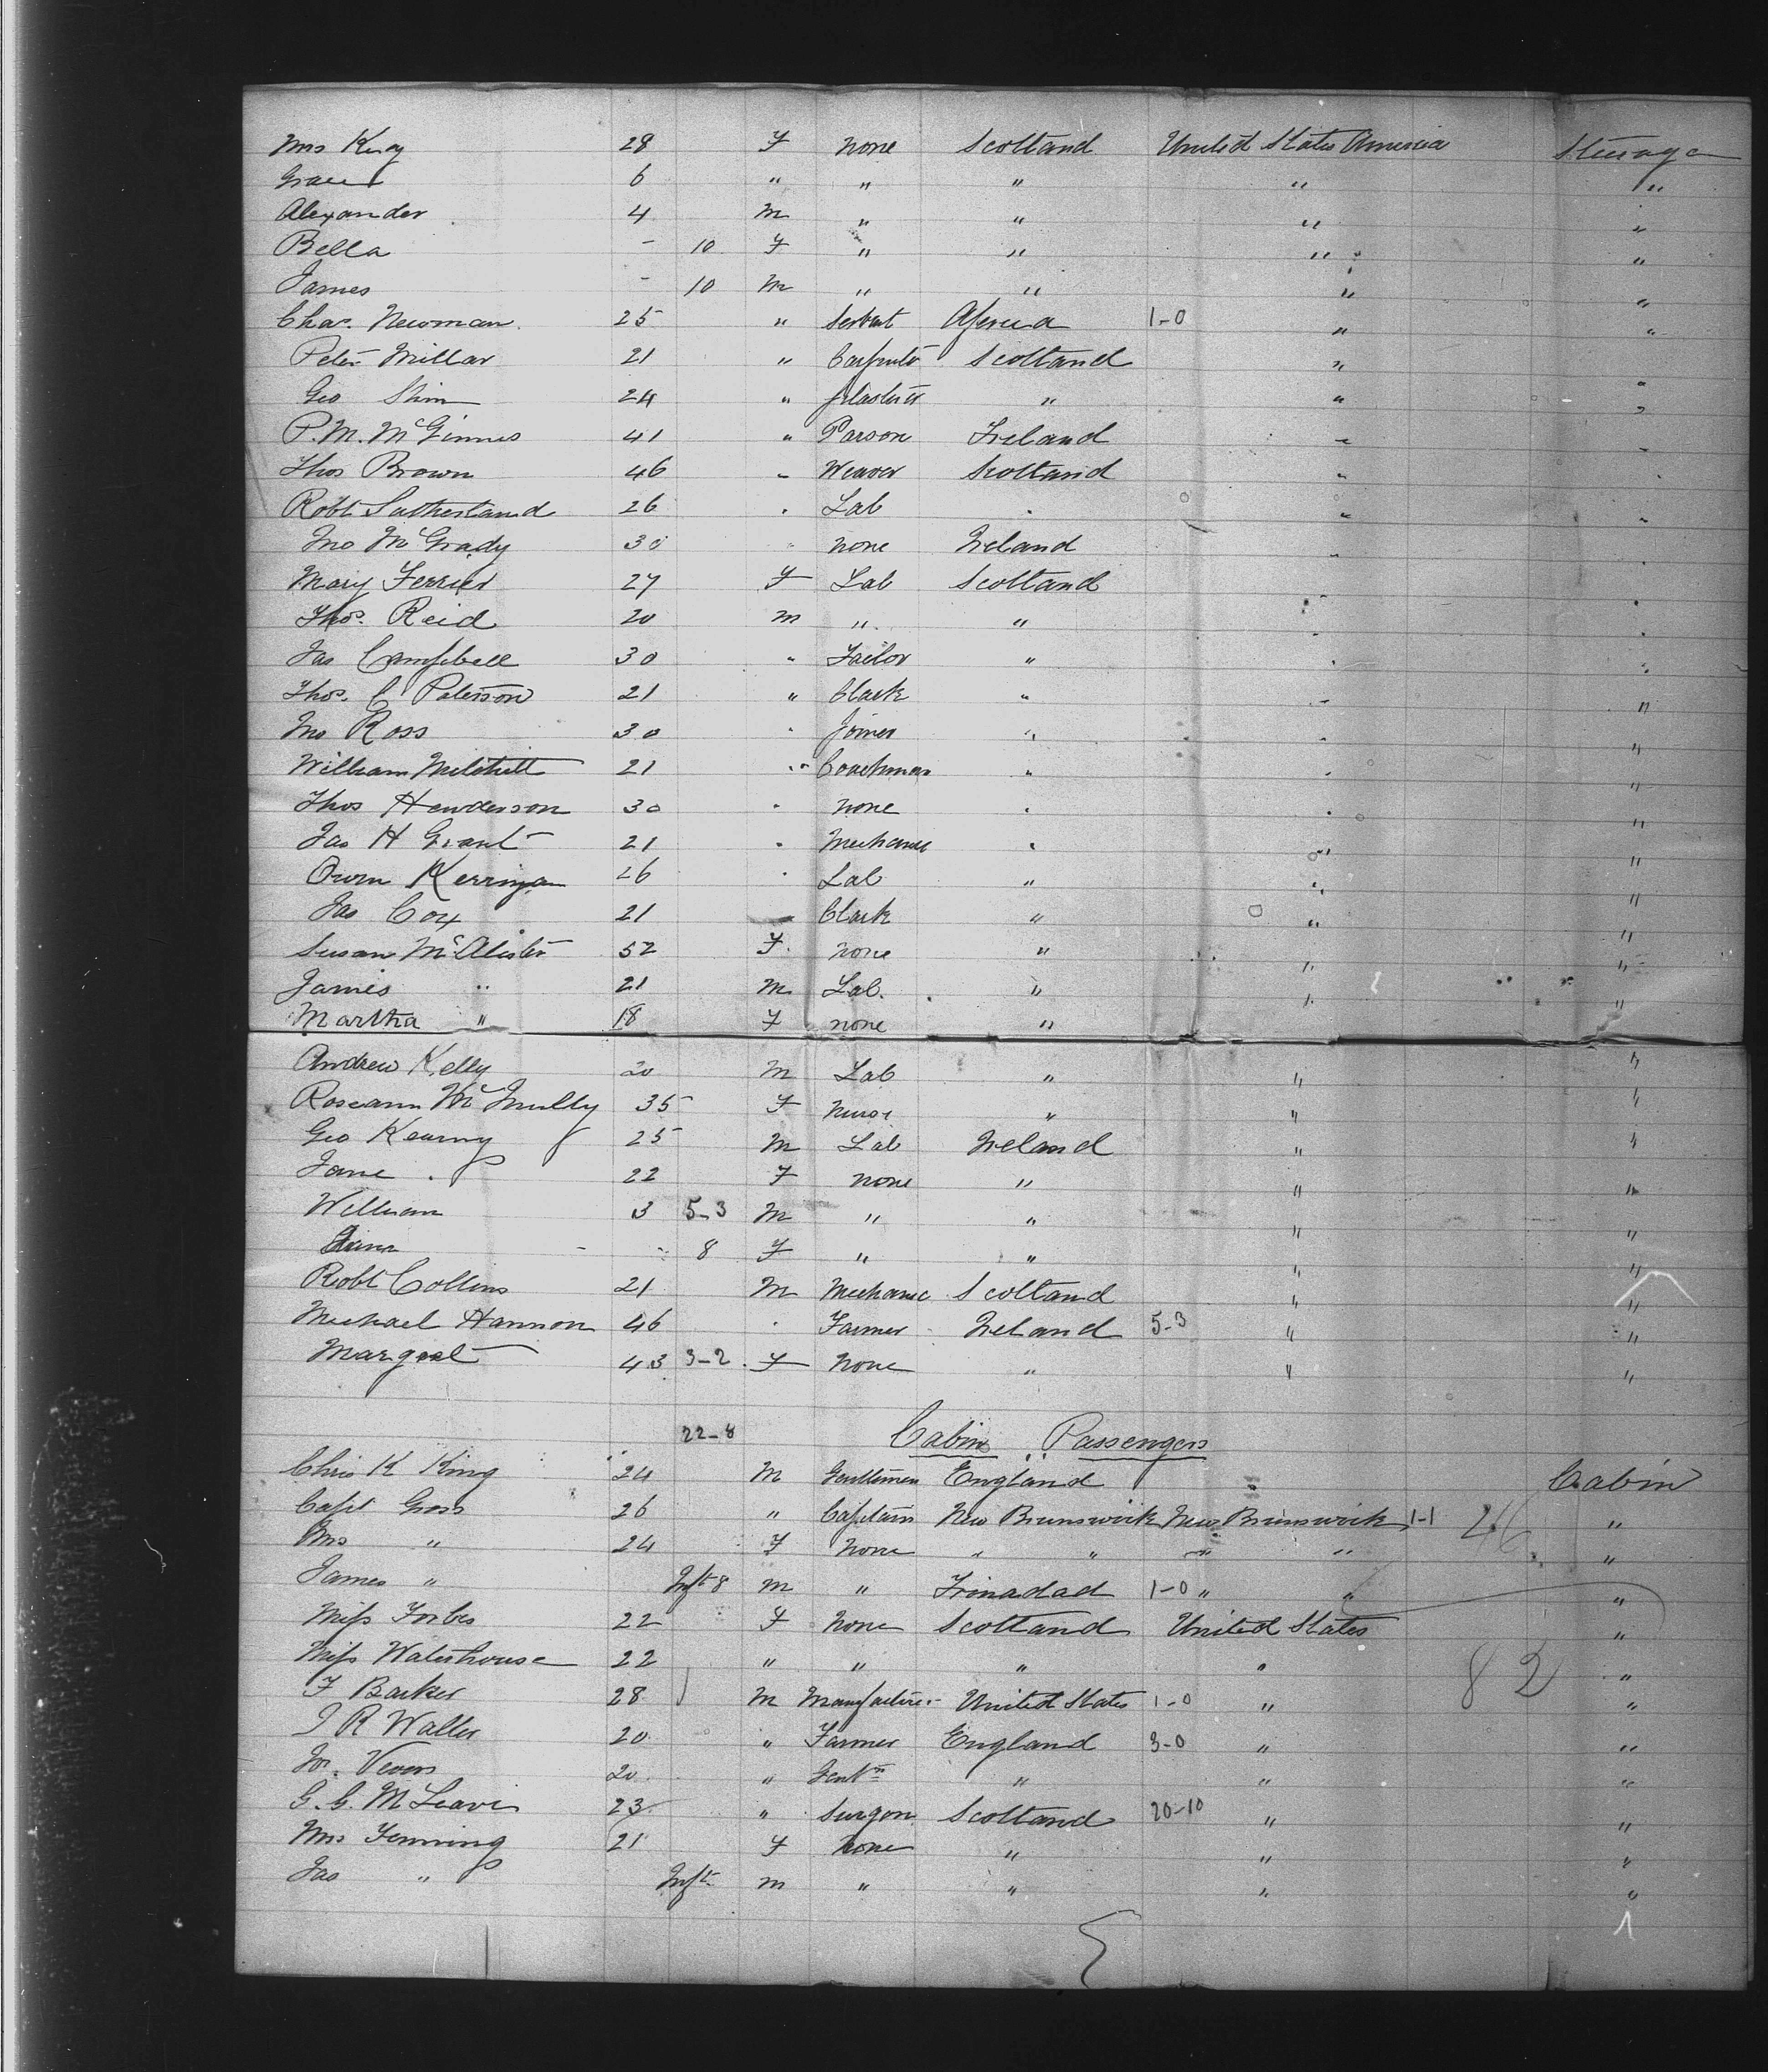 Mrs Kay 28 F none Scotland United States America Steerage
Grace 6 " " " " "
Alexander 4 m " " " "
Bella - 10 F " " " "
James - 10 m " " " "
Chas. Newman 25 " Servant Africa 1-0 " "
Peter Millar 21 " Carpenter Scotland " "
Geo 24 " plasterer " " "
P. M. McGinnes 41 " Parson Ireland " "
Thos Brown 46 " Weaver Scotland " "
Robt Sutherland 26 " Lab " " "
Jno McGrady 30 " none Ireland " "
Mary Ferrier 27 F Lab Scotland " "
Thos. Reid 20 m " " " "
Jas Campbell 30 " Tailor " " "
Thos. C Paterson 21 " Clark " " "
Jno Ross 30 " Joiner " " "
William Mitchell 21 " Coachman " " "
Thos Henderson 30 " none " " "
Jas H Grant 21 " Mechanic " " "
Owen Kerrigan 26 " Lab " " "
Jas Cox 21 " Clark " " "
Susan McAlister 52 F. none " " "
James " 21 m Lab. " " "
Martha " 18 F none " " "
Andrew Kelly 20 m Lab " " "
Roseann Mc 35 F Nurse " " "
Geo Kearny 25 m Lab Ireland " "
Jane " 22 F none " " "
William 3 5-3 m " " " "
- " 8 F " " " "
Robt Collins 21 m Mechanic Scotland " "
Michael Hannon 46 " Farmer Ireland 5-3 " "
Margret 43 3-2 F none " " "
22-8 Cabin Passengers
Chris K King 24 m Gentlemen England " Cabin
Capt Goss 26 " Captain New Brunswick New Brunswick 1-1 26 "
Mrs " 24 F none " " " " "
James " Inft 8 m " Trinadad 1-0 " " "
Miss Forbes 22 F none Scotland United States "
Miss Waterhouse 22 " " " " 82 "
F Barker 28 m Manufacturer United States 1-0 " "
J R Waller 20 " Farmer England 3-0 " "
Jn. Vevers 20 " Gentn " " "
G. G. 23 " Surgon Scotland 20-10 " "
Mrs Fenning 21 F none " " "
Jas " Inft m " " " "